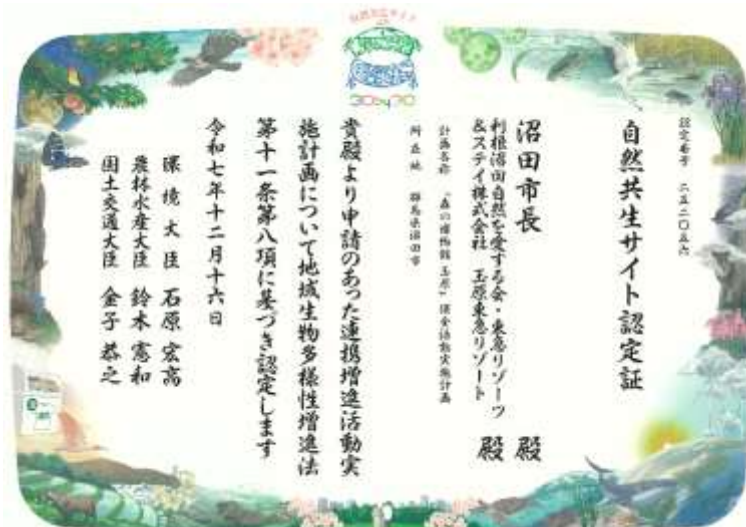 認定番号 二五二〇五六
自然共生サイト認定証
沼田市長 殿
利根沼田自然を愛する会・東急リゾーツ
&ステイ株式会社 玉原東急リゾート 殿
計画名称 「森の博物館 玉原」保全活動実施計画
所在地 群馬県沼田市
貴殿より申請のあった連携増進活動実
施計画について地域生物多様性増進法
第十一条第八項に基づき認定します
令和七年十二月十六日
環境大臣 石原宏高
農林水産大臣 鈴木憲和
国土交通大臣 金子恭之
30by30